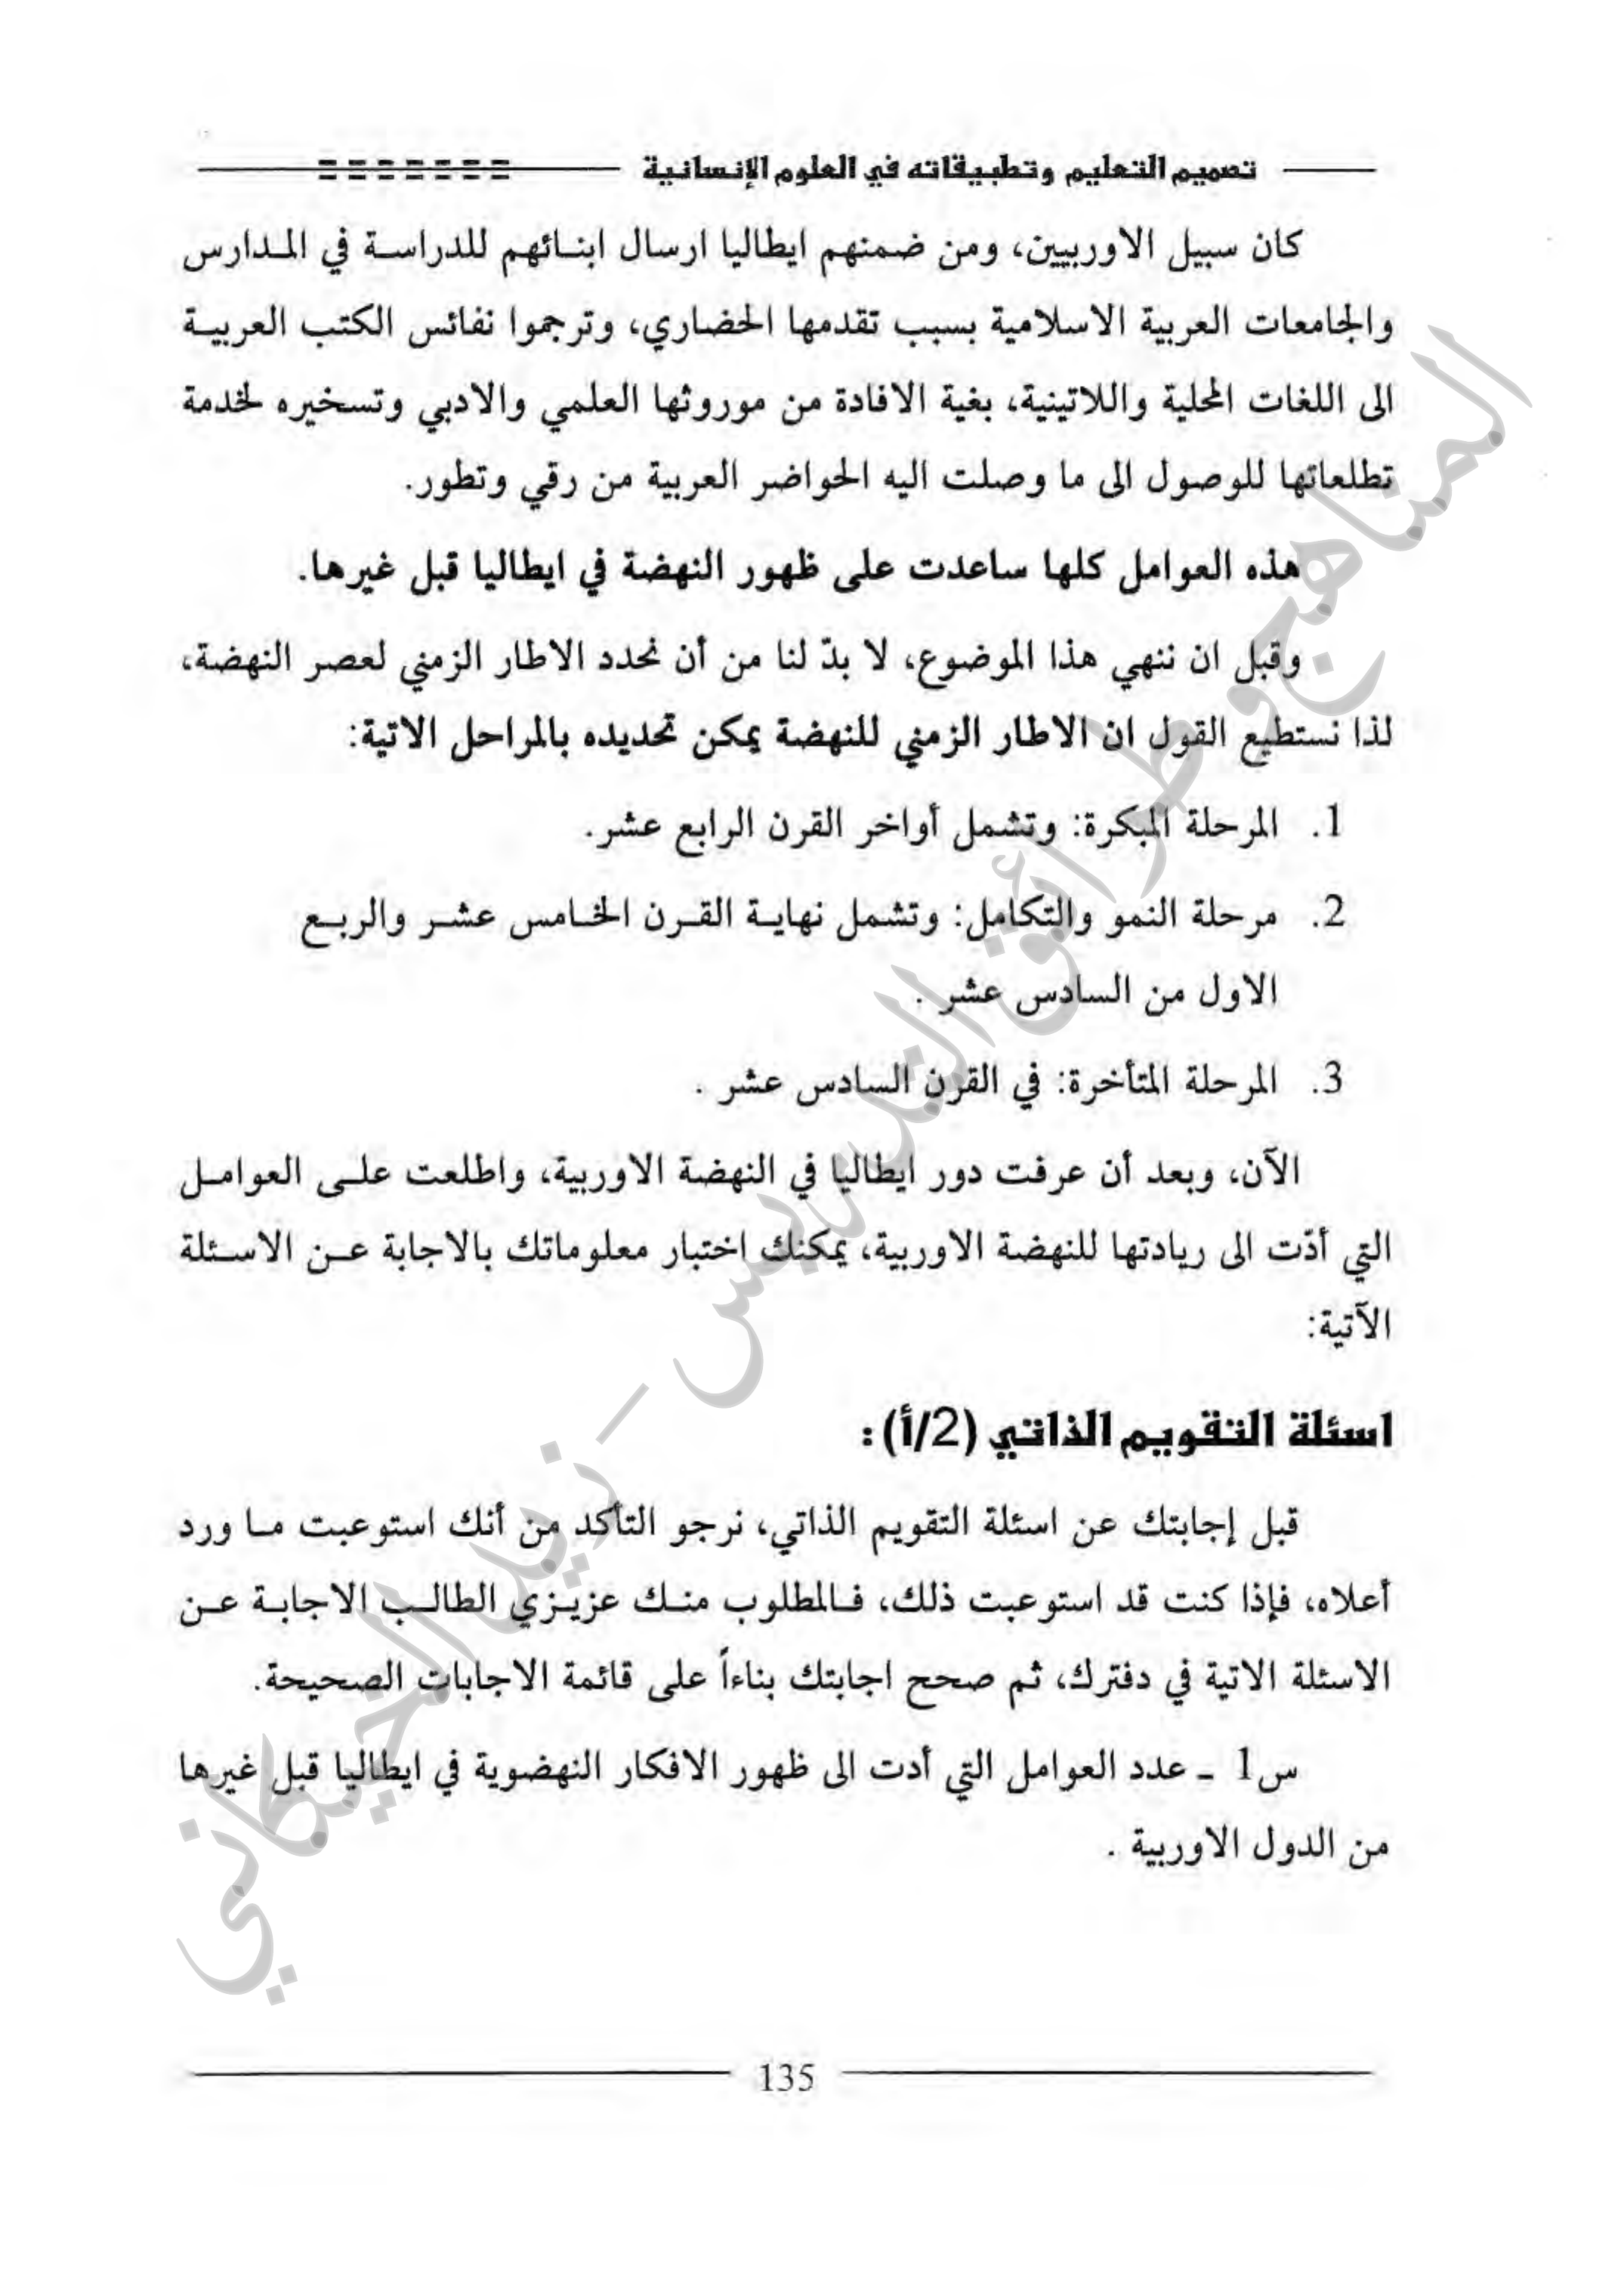 تصميم التعليم وتطبيقاته في العلوم الإنسانية
كان سبيل الاوربيين، ومن ضمنهم ايطاليا ارسال ابنائهم للدراسة في المدارس
والجامعات العربية الاسلامية بسبب تقدمها الحضاري، وترجموا نفائس الكتب العربية
الى اللغات المحلية واللاتينية، بغية الافادة من موروثها العلمي والادبي وتسخيره لخدمة
تطلعاتها للوصول الى ما وصلت اليه الحواضر العربية من رقي وتطور.
هذه العوامل كلها ساعدت على ظهور النهضة في ايطاليا قبل غيرها.
وقبل ان ننهي هذا الموضوع، لا بدّ لنا من أن نحدد الاطار الزمني لعصر النهضة،
لذا نستطيع القول ان الاطار الزمني للنهضة يمكن تحديده بالمراحل الاتية:
1. المرحلة المبكرة: وتشمل أواخر القرن الرابع عشر.
2. مرحلة النمو والتكامل: وتشمل نهاية القرن الخامس عشر والربع
الاول من السادس عشر .
3. المرحلة المتأخرة: في القرن السادس عشر .
الآن، وبعد أن عرفت دور ايطاليا في النهضة الاوربية، واطلعت على العوامل
التي أدّت الى ريادتها للنهضة الاوربية، يمكنك اختبار معلوماتك بالاجابة عن الاسئلة
الآتية:
اسئلة التقويم الذاتي (2/أ):
قبل إجابتك عن اسئلة التقويم الذاتي، نرجو التأكد من أنك استوعبت ما ورد
أعلاه، فإذا كنت قد استوعبت ذلك، فالمطلوب منك عزيزي الطالب الاجابة عن
الاسئلة الاتية في دفترك، ثم صحح اجابتك بناءاً على قائمة الاجابات الصحيحة.
س1 ـ عدد العوامل التي أدت الى ظهور الافكار النهضوية في ايطاليا قبل غيرها
من الدول الاوربية .
135
المناهج وطرائق التدريس – زيد الخيكاني